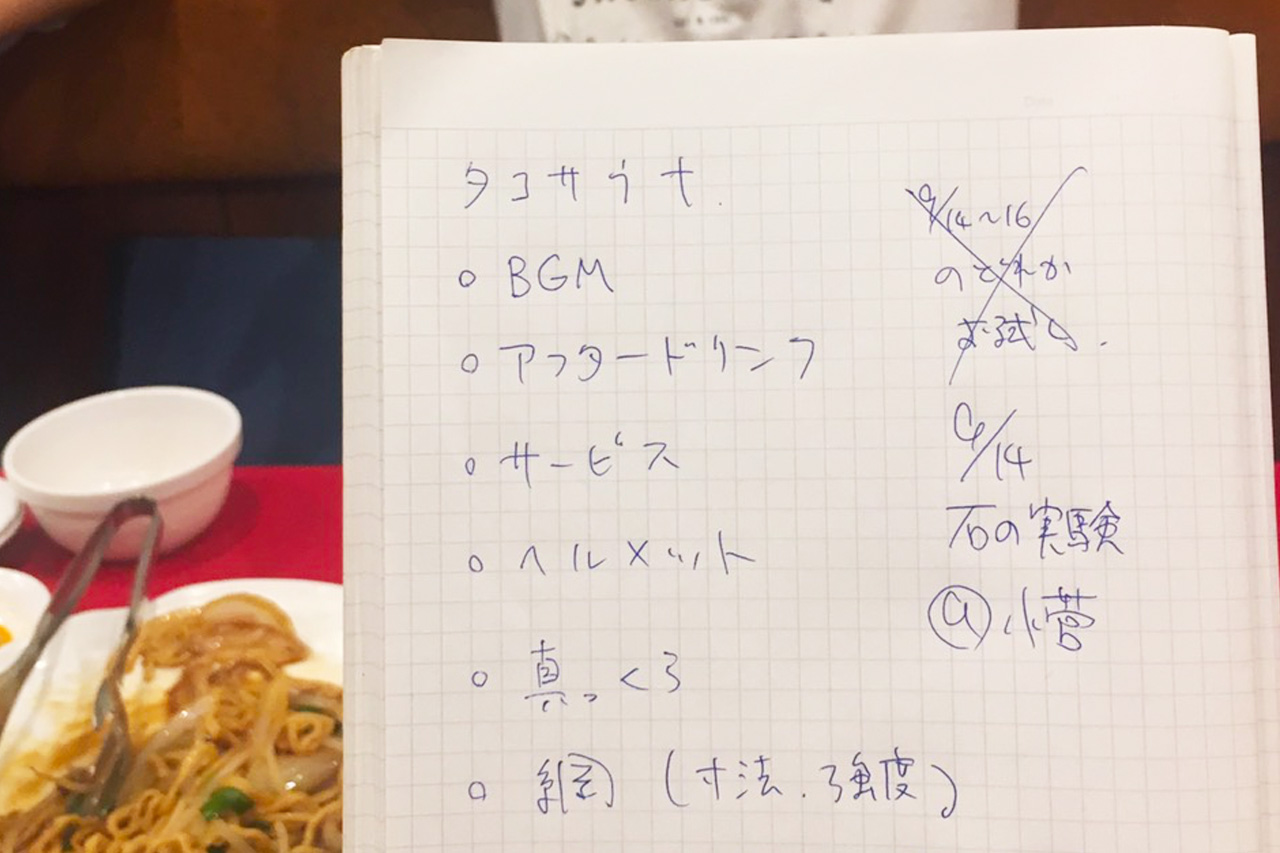 タコサウナ.
○ BGM
○ アフタードリンク
○ サービス
○ ヘルメット
○ 真っくろ
○ 網(寸法、強度)
9/14~16
のどれか
お試し.
9/14
石の実験
@小菅